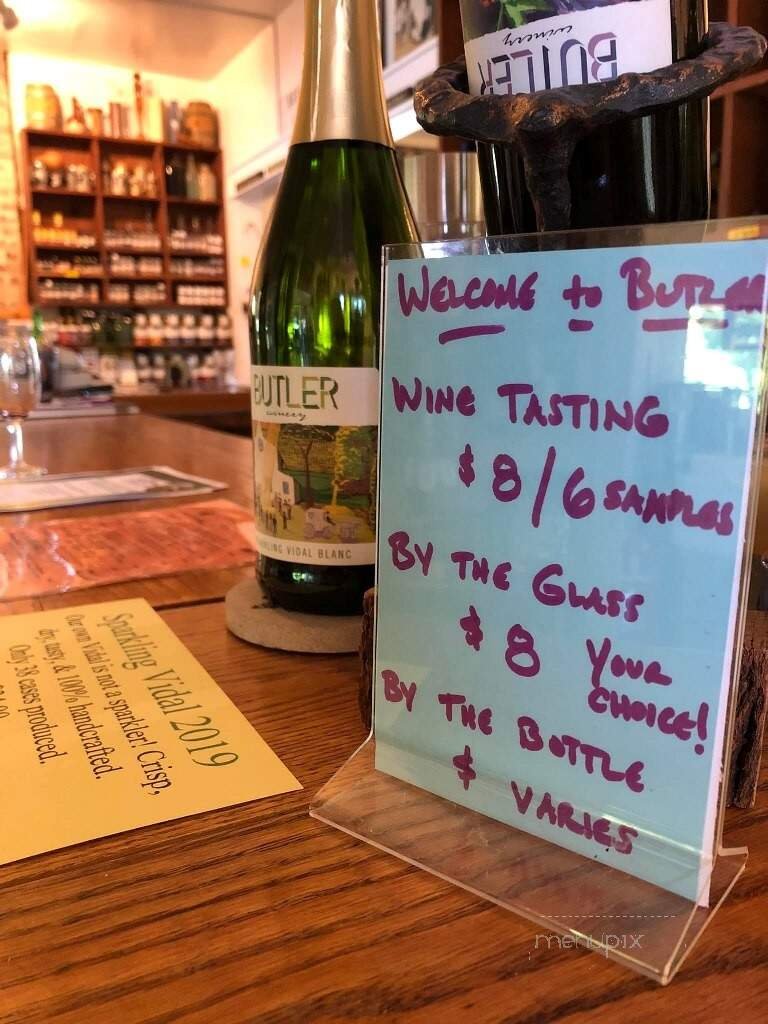 BUTLER
winery
WELCOME to BUTLER
WINE TASTING
$8/6 SAMPLES
BY THE GLASS
$8 YOUR
CHOICE!
BY THE BOTTLE
$ VARIES
BUTLER
winery
SPARKLING VIDAL BLANC
Sparkling Vidal 2019
Our own Vidal is not a sparkler! Crisp,
dry, & 100% handcrafted.
Only 38 cases produced.
menupix